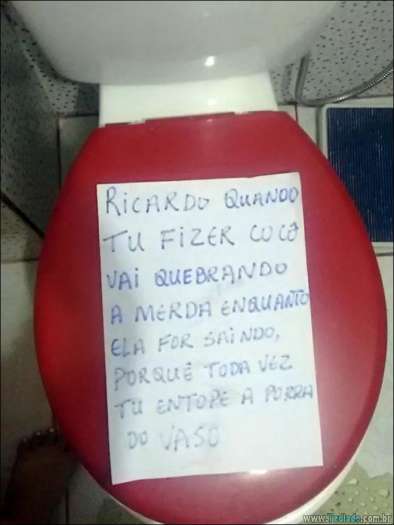 RICARDO QUANDO
TU FIZER COCÔ
VAI QUEBRANDO
A MERDA ENQUANTO
ELA FOR SAINDO,
PORQUE TODA VEZ
TU ENTOPE A PORRA
DO VASO